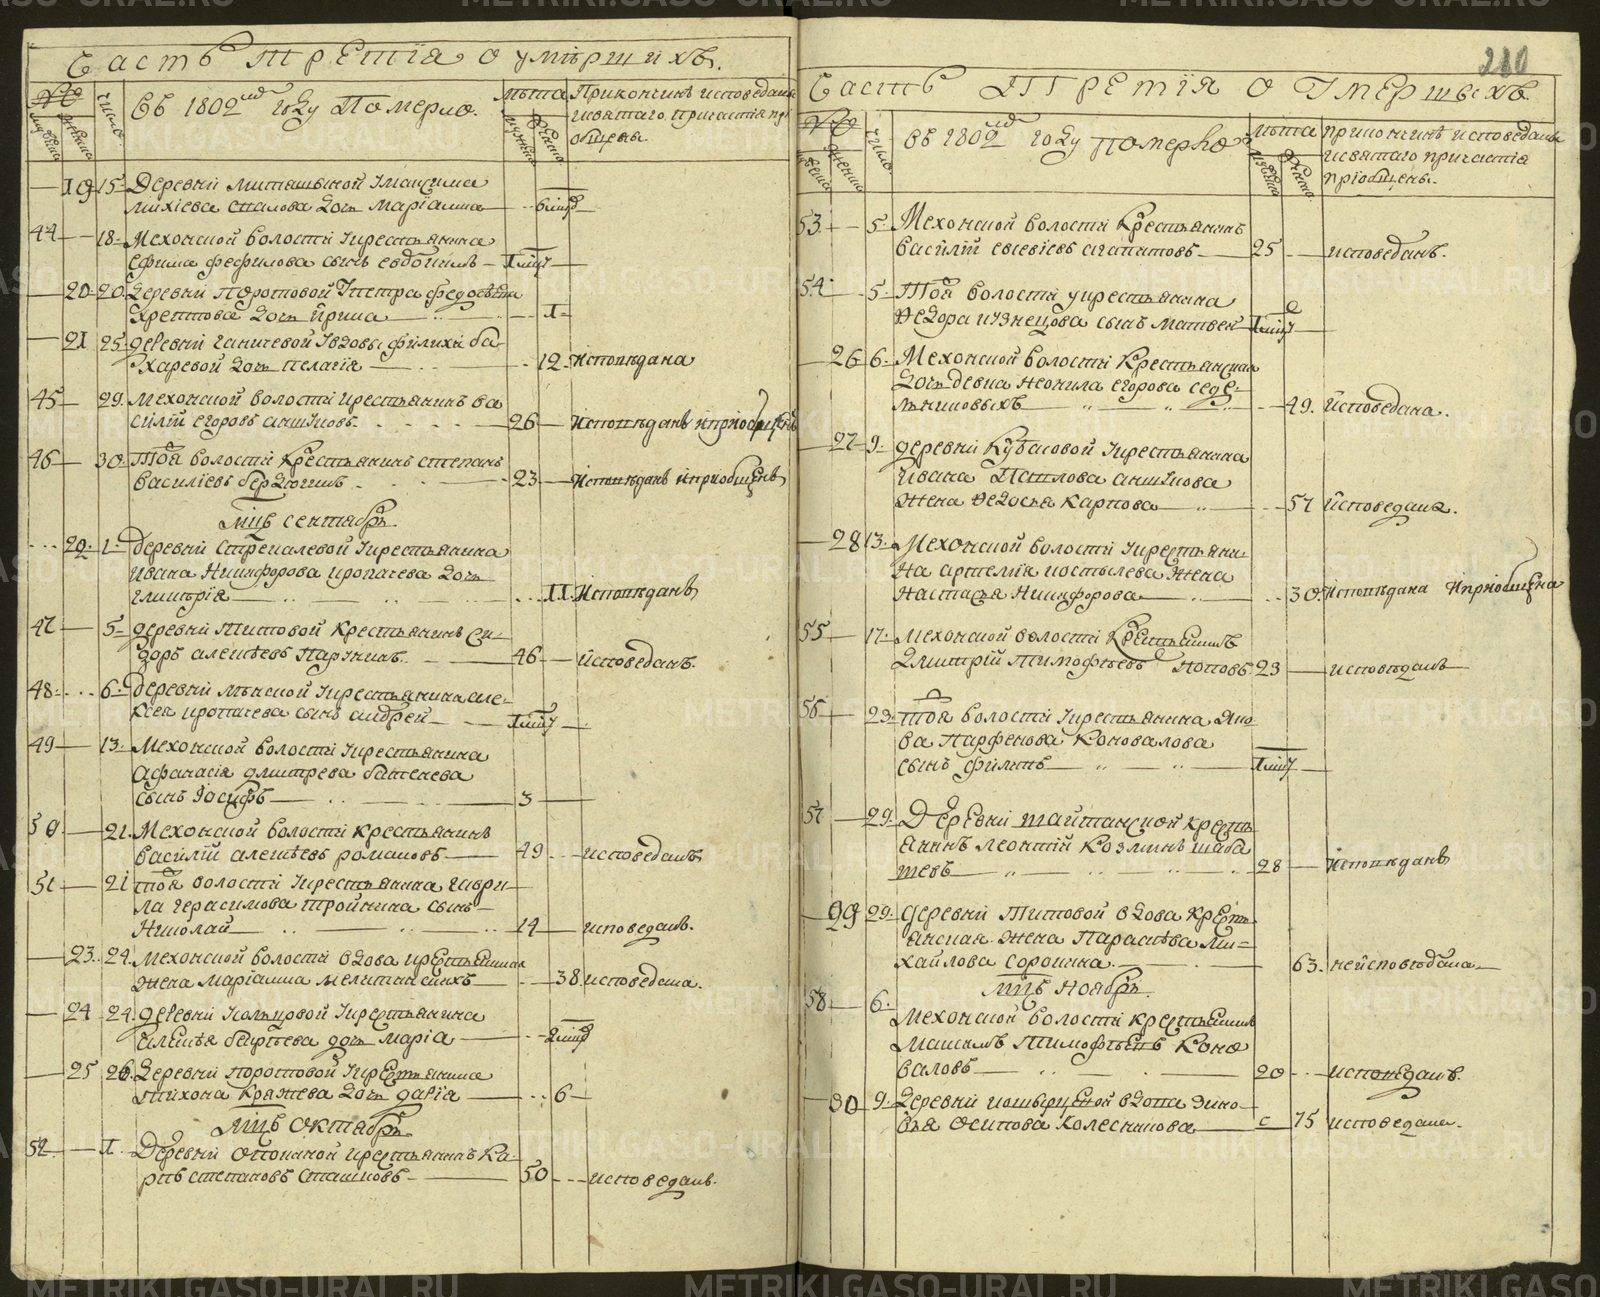 Часть третїа о умѣршихъ.
№ число. Въ 1802мъ году Померло. лѣта Прикончинѣ исповеданы
мужеска женска мужеска женска исвятаго причастїя прї
общены.
19 15 Деревни Миташыной Умаѯима
Михїева сначова дочь Марїамна 6 мцъ
44 18 Мехонской волости Укрестьянина
Ефима Фефилова сынъ Евдокимъ 1 мцъ
20 20 деревни Поротовой Упетра Федосѣева
Хрептова дочь Ирина 1
21 25 деревни Ганичевой Увдовы Филихи ба
харевой дочь Пелагїя 12 Исповѣдана
45 29 Мехонской волости крестьянинъ ва
силїй Егоровъ аншуковъ 26 Исповѣданъ ипрїобщенъ
46 30 Тоя волости крестьянинъ степанъ
василїевъ бердюгинъ 23 Исповѣданъ ипрїобщенъ
мцъ сентябрь
22 1 деревни Стрекаловой Укрестьянина
Ивана Никифорова кропачева дочь
Гликерїя 11 Исповѣданъ
47 5 деревни Титовой Крестьянинъ Си-
доръ алеѯѣевъ Паркинъ 46 исповеданъ
48 6 деревни мѣнской Укрестьянина але-
ксея кропачева сынъ андрей 1 мцъ
49 13 Мехонской волости Укрестьянина
Афанасїя дмитрева батенева
сынъ Їосифъ 3
50 21 Мехонской волости крестьянинъ
василїй алеѯѣевъ романовъ 49 исповеданъ
51 21 тоя волости Укрестьянина гаври-
ла герасимова тройнина сынъ
Николай 14 исповеданъ.
23 24 Мехонской волости вдова крестьянская
жена марїамна мелитинскихъ 38 исповедана.
24 24 деревни кольцовой Укрестьянина
алеѯѣя бекрѣева дочь марїа 2 мцъ
25 26 Деревни поротовой Укрестьянина
тихона Кряжева дочь дарїа 6
мцъ Октябрь
52 1 Деревни Опокиной крестьянинъ Ка-
рпъ степановъ Сташковъ 50 исповеданъ.
210
Часть Третїя о Умершыхъ.
№ число. въ 1802мъ году померло лѣта приконинѣ исповеданы
женска исвятаго причастїя
прїобщены.
53 5 Мехонской волости Крестьянинъ
василїй евсевїевъ агапитовъ 25 исповеданъ.
54 5 Тоя волости укрестьянина
Федора кузнецова сынъ матвей 1 мцъ
26 6 Мехонской волости Крестьянская
дочь девка Неонила егорова седе-
льниковыхъ 49 исповедана.
27 9 деревни Кубасовой Укрестьянина
Ивана Павлова аншукова
жена Федосья Карпова 57 исповедана.
28 13 Мехонской волости Укрестьяни
на артемїя костылева жена
Настасья Никифорова 30 исповѣдана ипрїобщена
55 17 Мехонской волости Крестьянинъ
Дмитрїй тимофѣевъ Поповъ 23 исповѣданъ
56 23 тоя волости Укрестьянина Яко
ва Парфенова Коновалова
сынъ филипъ 1 мцъ
57 29 Деревни тайтанской кресть
янинъ леонтїй Козминъ шаба
тевъ 28 исповѣданъ
29 29 деревни Титовой вдова крест
янская жена Параскѣва ми=
хайлова сорокина 63 неисповѣдана
мцъ Ноябрь
58 6 Мехонской волости крестьянинъ
Маѯимъ Тимофѣевъ Коно
валовъ 20 исповеданъ.
30 9 деревни кошырцевой вдова Зино-
вья Осипова Колесникова 75 исповедана.